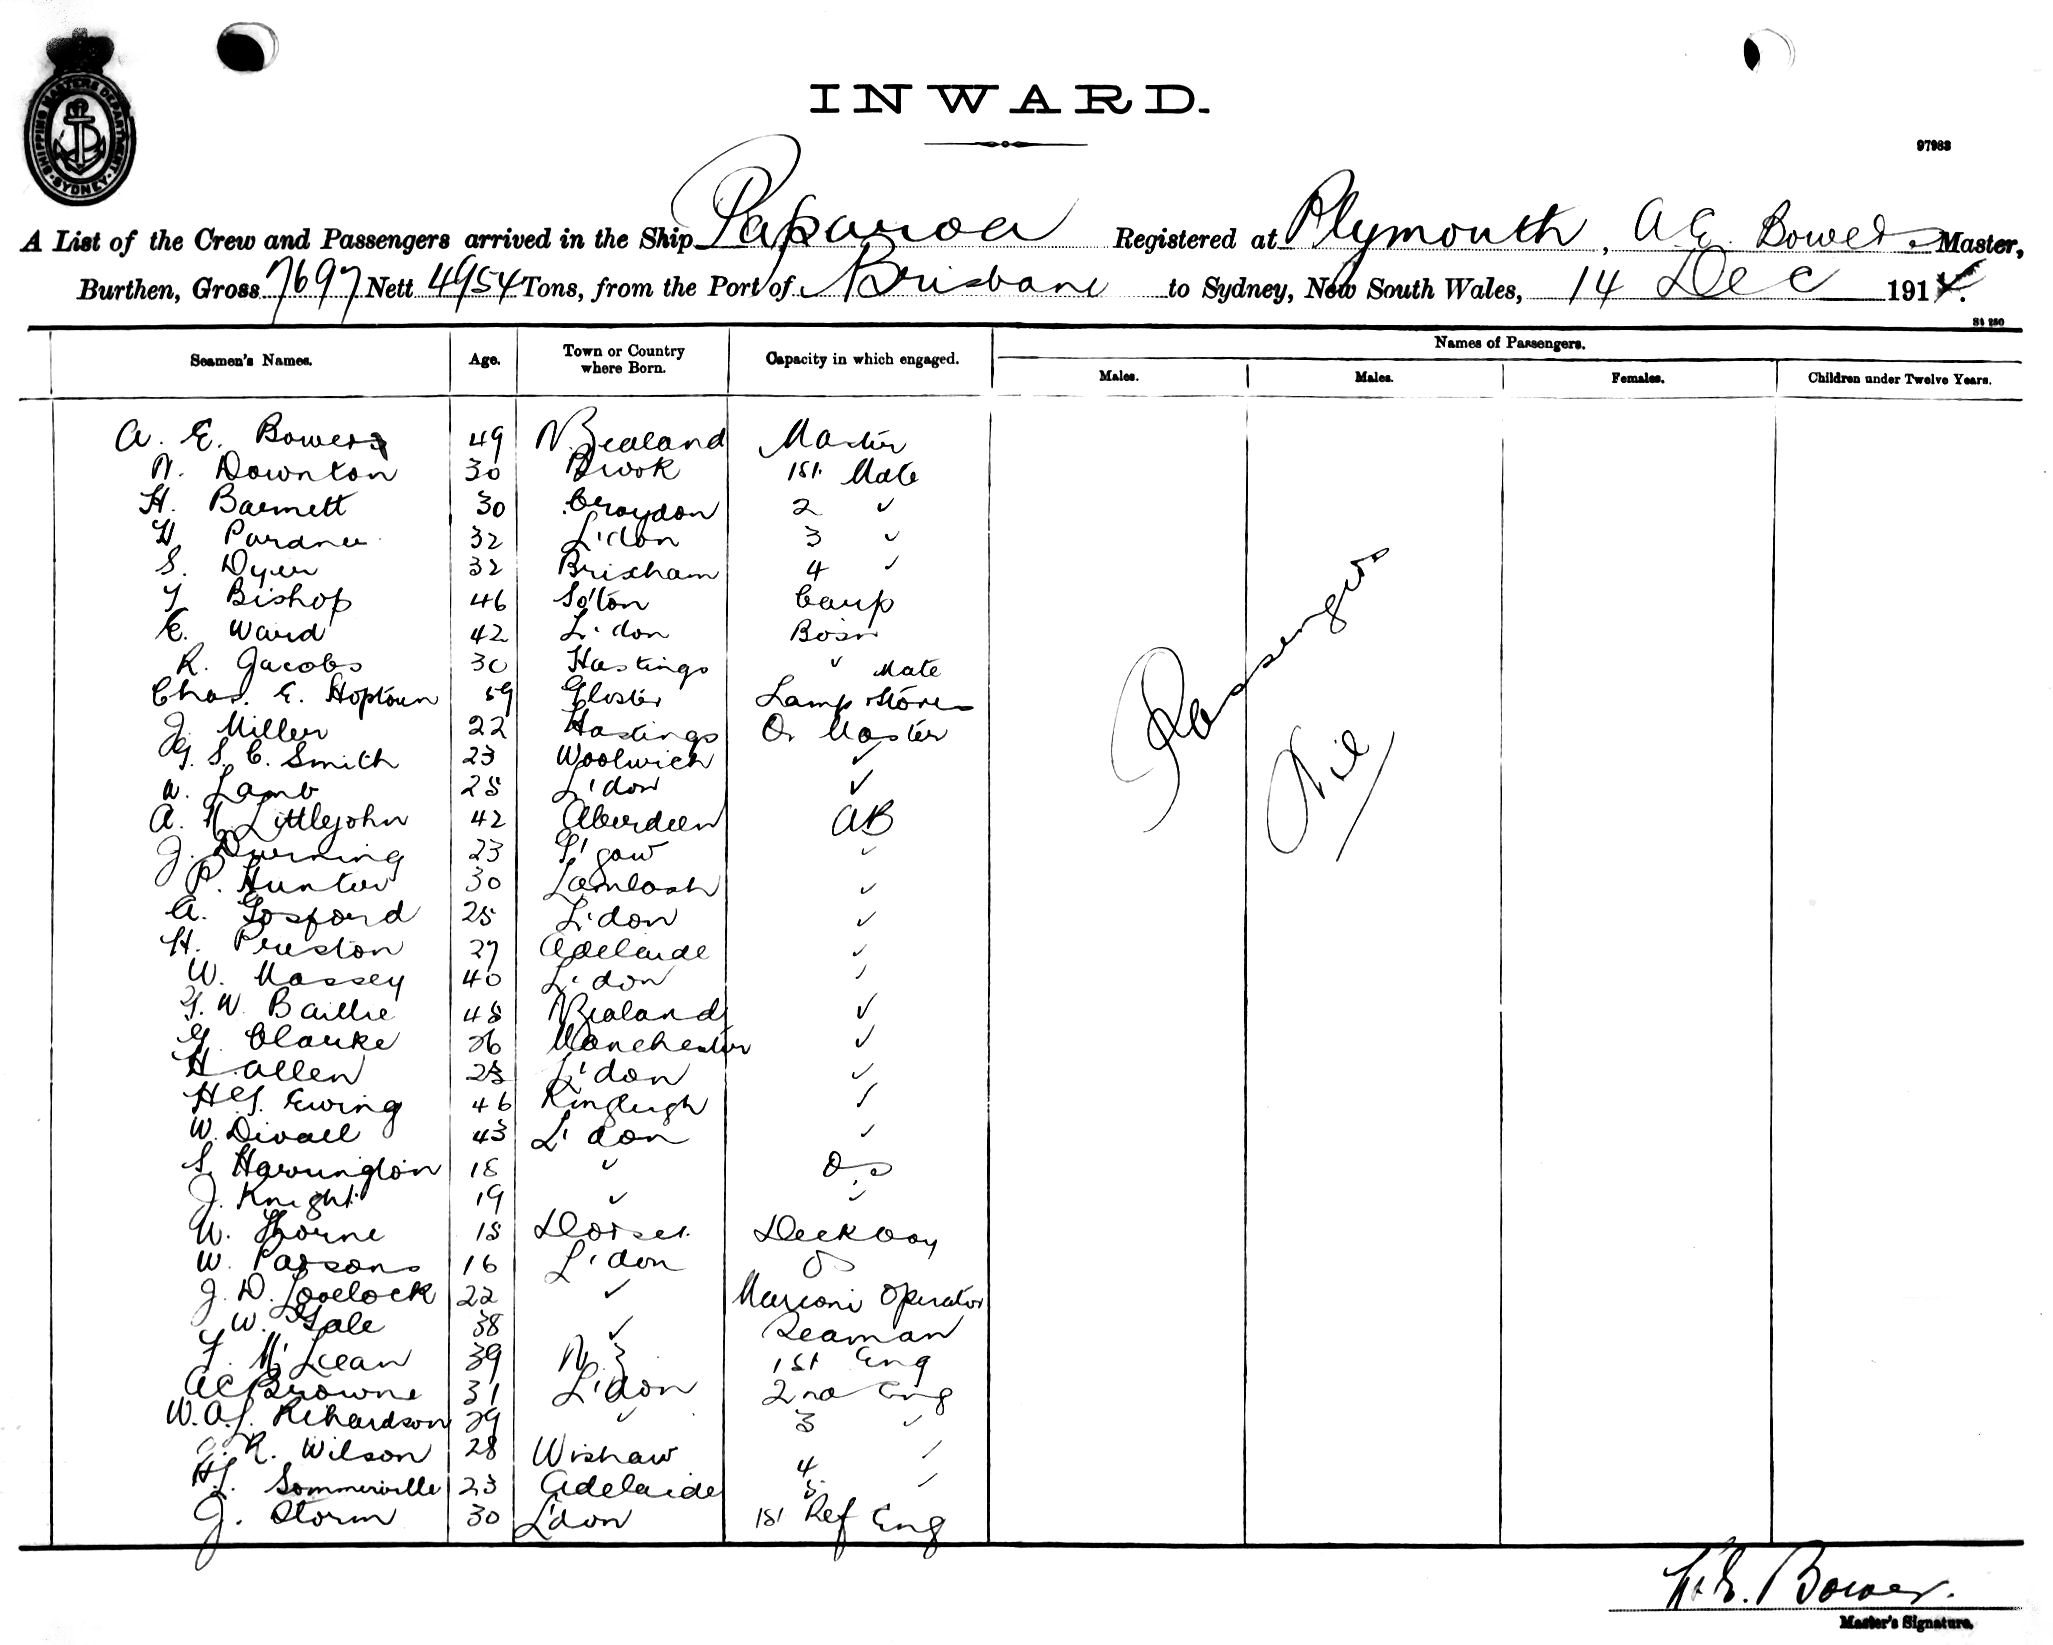 SHIPPING MASTERS DEPARTMENT
SYDNEY
INWARD.
97983
A List of the Crew and Passengers arrived in the Ship Paparoa Registered at Plymouth, A E. Bowers Master,
Burthen, Gross 7697 Nett 4954 Tons, from the Port of Brisbane to Sydney, New South Wales, 14 Dec 1914.
St 250
Seamen's Names. Age. Town or Country where Born. Capacity in which engaged. Names of Passengers.
Males. Males. Females. Children under Twelve Years.
A. E. Bowers 49 N. Zealand Master
N. Downton 30 Brook 1st Mate
H. Barnett 30 Croydon 2 ✓
H Pardner 32 L'don 3 ✓
S. Dyer 32 Brixham 4 ✓
Bishop 46 So'ton Carp
E. Ward 42 L'don Bosn
R. Jacobs 30 Hastings ✓ Mate
Chas. E. Hoptown 59 Gloster Lamp & Stores
J. Miller 22 Hastings Qr Master
G. S. C. Smith 23 Woolwich ✓
W. Lamb 25 L'don ✓
A. M Littlejohn 42 Aberdeen AB
J. Durning 23 G'gow ✓
P. Hunter 30 Lamlash ✓
A. Gosford 25 L'don ✓
H. Preston 27 Adelaide ✓
W. Massey 40 L'don ✓
G. W Baillie 48 N Zealand ✓
G. Clarke 26 Manchester ✓
H Allen 23 L'don ✓
H G. Ewing 46 ✓
W. Divall 43 L'don ✓
S. Harrington 18 ✓ O S
J. Knight 19 ✓ ✓
W. Thorne 18 Dorset Deck boy
W. Parsons 16 L'don
J. D. Lovelock 22 ✓ Marconi Operator
W. Gale 38 ✓ Seaman
Mc Lean 39 N. Z 1st Eng
A C Browne 31 L'don 2nd Eng
W. A. J. Richardson 29 ✓ 3 ✓
R. Wilson 28 Wishaw 4 ✓
H. L. Sommerville 23 Adelaide 5 ✓
J. Storm 30 L'don 1st Ref Eng
Passengers
Nil
A. E. Bower.
Master's Signature.